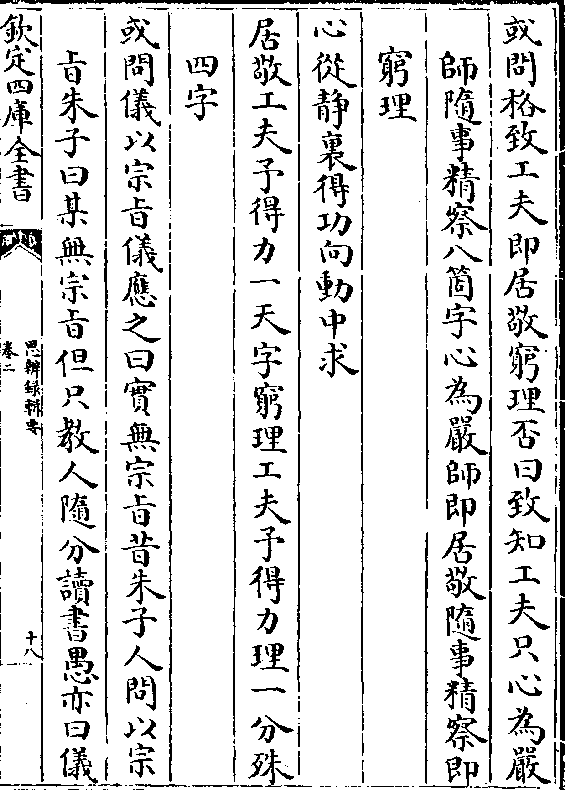 或問格致工夫即居敬窮理否曰致知工夫只心為嚴
師隨事精察八箇字心為嚴師即居敬隨事精察即
窮理
心從静裏得功向動中求
居敬工夫予得力一天字窮理工夫予得力理一分殊
四字
或問儀以宗㫖儀應之曰實無宗㫖昔朱子人問以宗
㫖朱子曰某無宗㫖但只教人隨分讀書愚亦曰儀
欽定四庫全書
思辨録輯要
卷二
十八